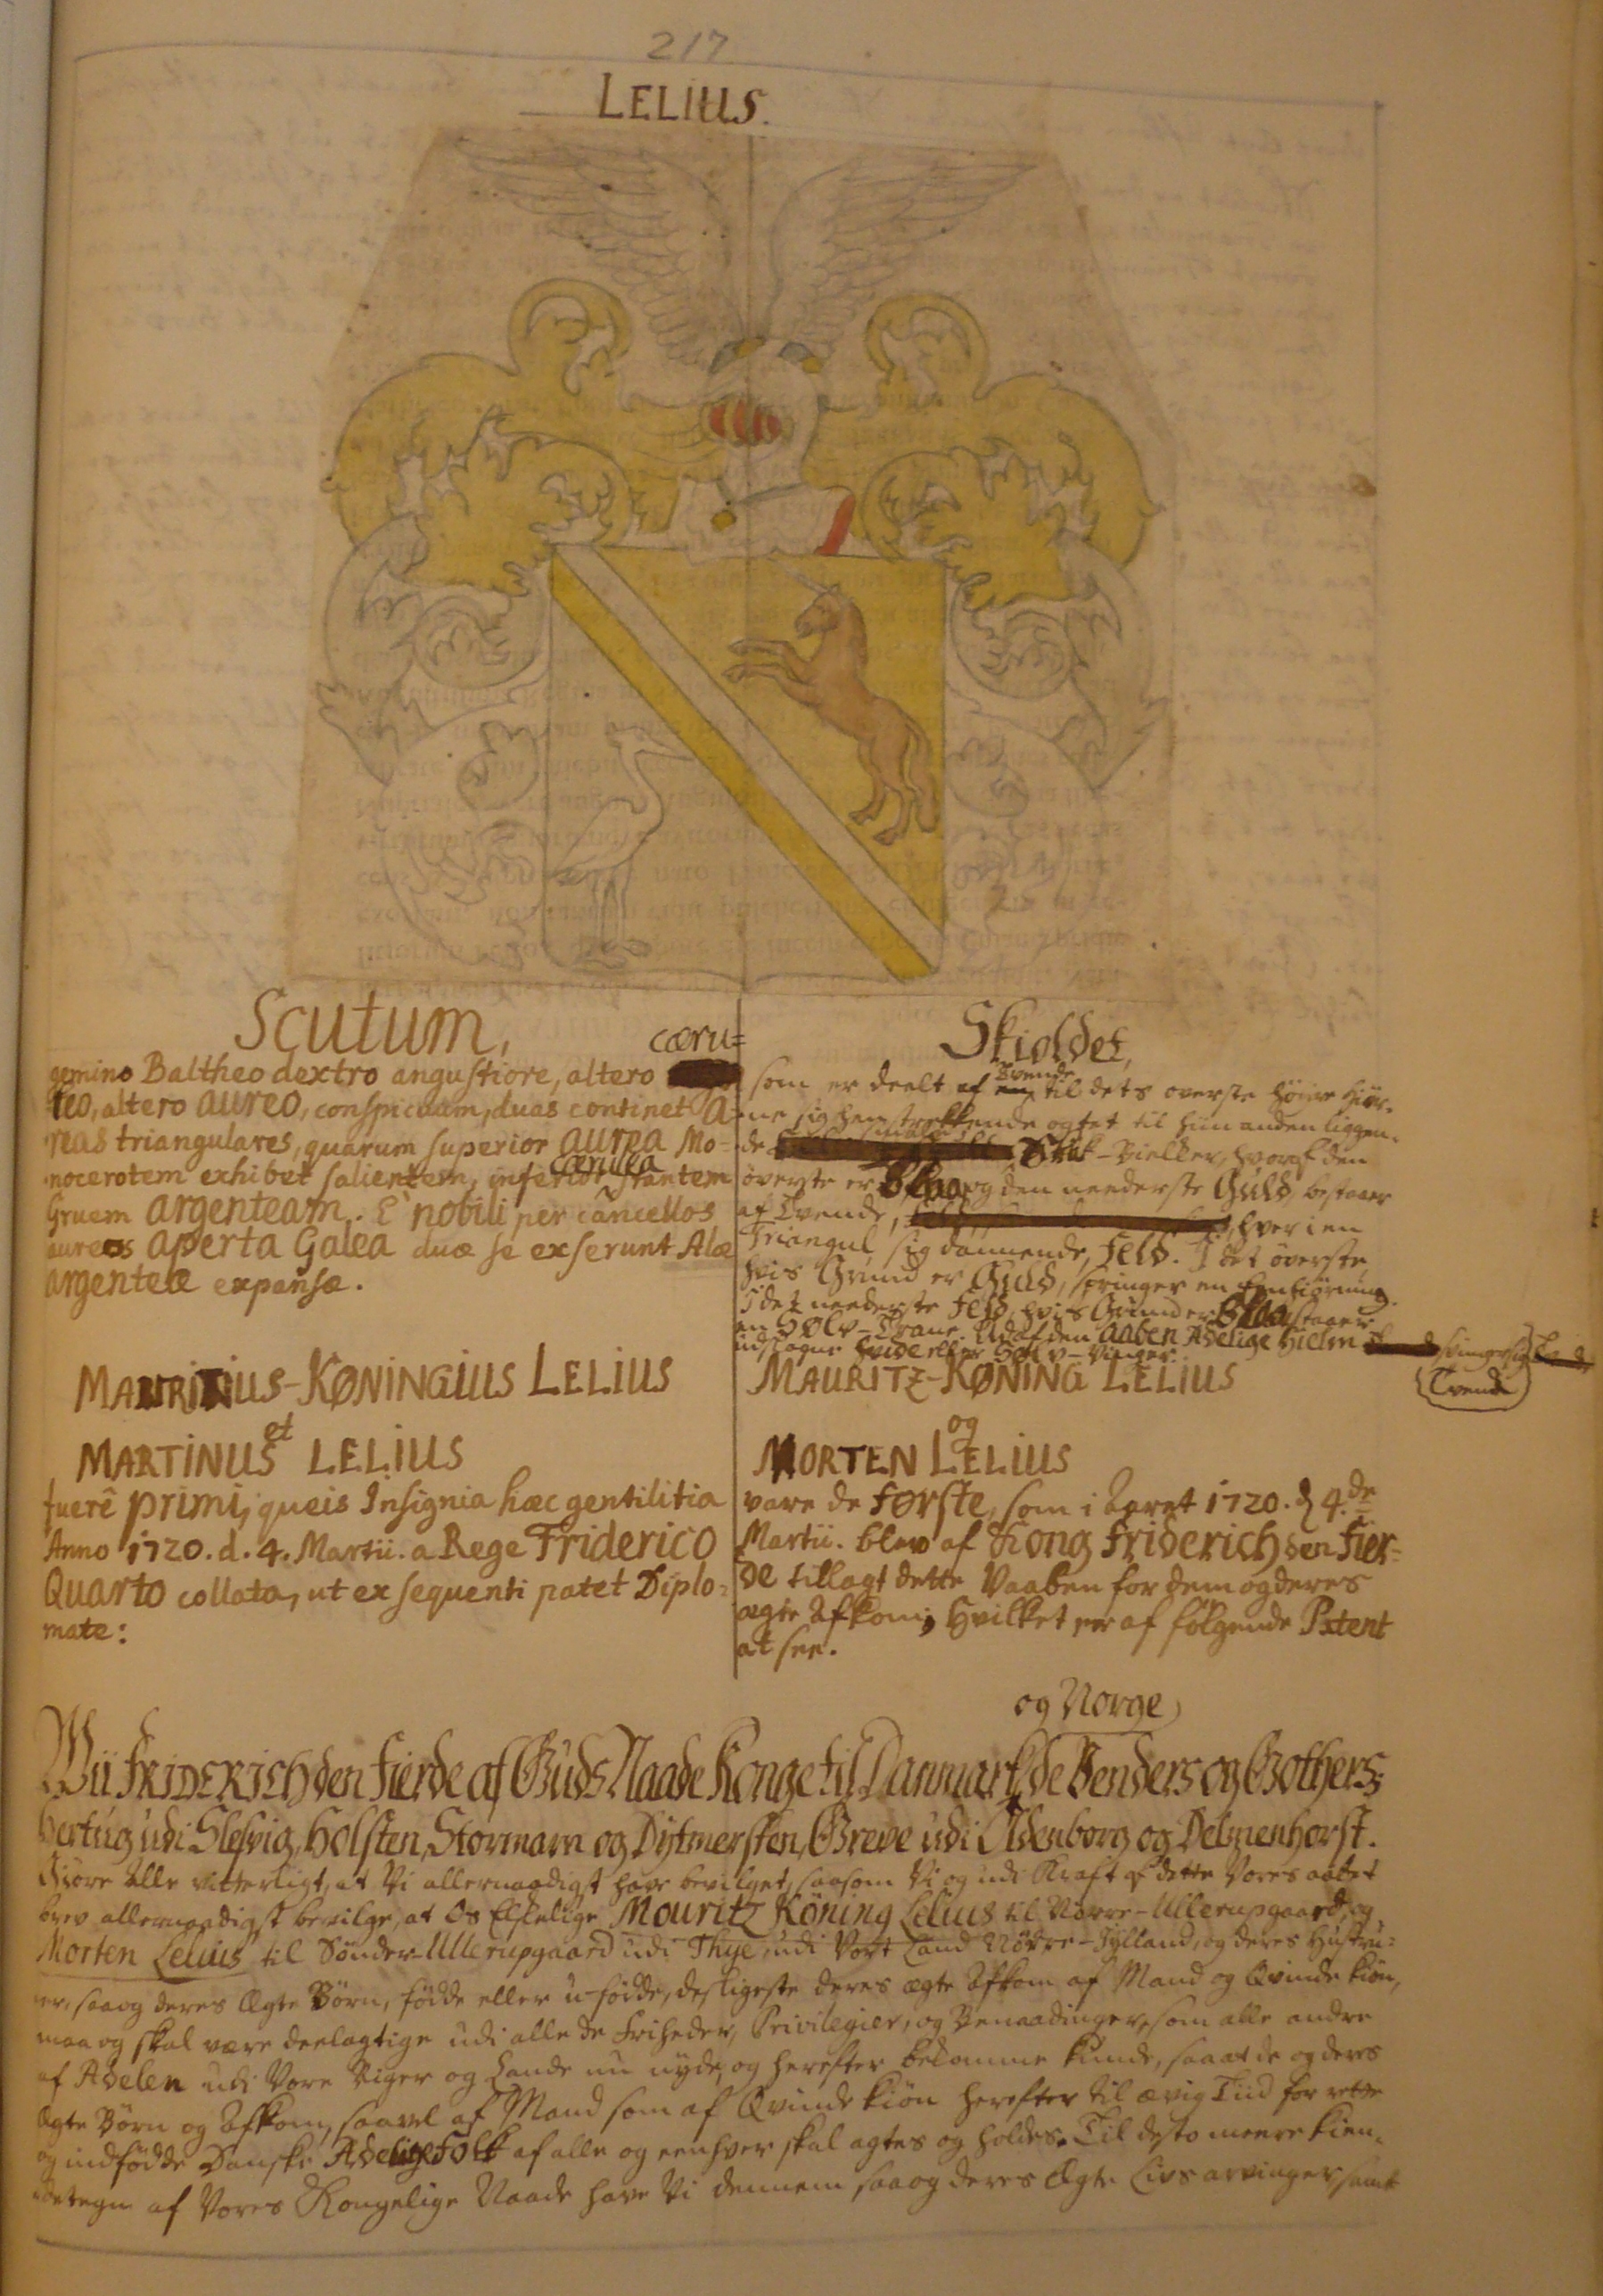 217
LELIUS.
Scutum,
cæru=
gemino Baltheo dextro angustiore, altero
leo, altero aureo, conspicuum, duas continet a-
reas triangulares, quarum superior aurea Mo-
nocerotem exhibet salientem, inferior cærulea stantem
Gruem argenteam. E nobili per cancellos
aureos aperta Galea duæ se exserunt Alæ
argenteæ expansæ.
MAURITIUS-KØNINGIUS LELIUS
et
MARTINUS LELIUS
fuerê primi, queis Insignia hæc gentilitia
Anno 1720. d. 4. Martii. a Rege Friderico
Quarto collata, ut ex sequenti patet Diplo=
mate:
Skioldet,
som er deelt af tvende til dets øverste høire Hiør-
ne sig henstrekkende og tet til hinanden liggen-
de smale Skraa-Bielker, hvoraf den
øverste er Blaa og den neederste Guld, bestaaer
af Tvende, hver i en
Triangul sig dannende, Feld. I det øverste,
hvis Grund er Guld, springer en Eenhiørning.
I det neederste Feld, hvis Grund er Blaa, staaer
en Sølv-Trane. Udaf den aaben Adelige Hielm svinger sig
Tvende
udslagne hvide eller Sølv-Vinger.
MAURITZ-KØNING LELIUS
og
MORTEN LELIUS
vare de første, som i Aaret 1720. d 4.de
Martii. blev af Kong Friderich den Fier-
de tillagt dette Vaaben for dem og deres
ægte Afkom; Hvilket er af følgende Patent
at see.
og Norge,
Wii FRIDERICH den Fierde af Guds Naade Konge til Danmark, de Venders og Gothers,
Hertug udi Slesvig, Holsten, Stormarn og Dytmersken, Greve udi Oldenborg og Delmenhorst.
Giøre Alle vitterligt, at Vi allernaadigst have bevilget, saasom Vi og udi Kraft af dette Vores aabet
brev allernaadigst bevilge, at Os Elskelige Mouritz Köning Lelius til Nørre-Ullerupgaard og
Morten Lelius til Sønder-Ullerupgaard udi Thye, udi Vort Land Nörre-Jylland, og deres Hustru=
er, saa og deres Ægte Börn, födde eller u-födde, desligeste deres ægte Afkom af Mand og Qvinde kiön,
maa og skal være deelagtige udi alle de Friheder, Privilegier, og Benaadinger, som alle andre
af Adelen udi Vore Riger og Lande nu nyde, og herefter bekomme kunde, saa at de og deres
Ægte Börn og Afkom, saavel af Mand som af Qvinde kiön herefter til ævig Tiid for rette
og indfödde Danske Adelige Folk af alle og eenhver skal agtes og holdes. Til desto meere kien-
detegn af Vores Kongelige Naade have Vi dennem saa og deres Ægte Livs arvinger, samt